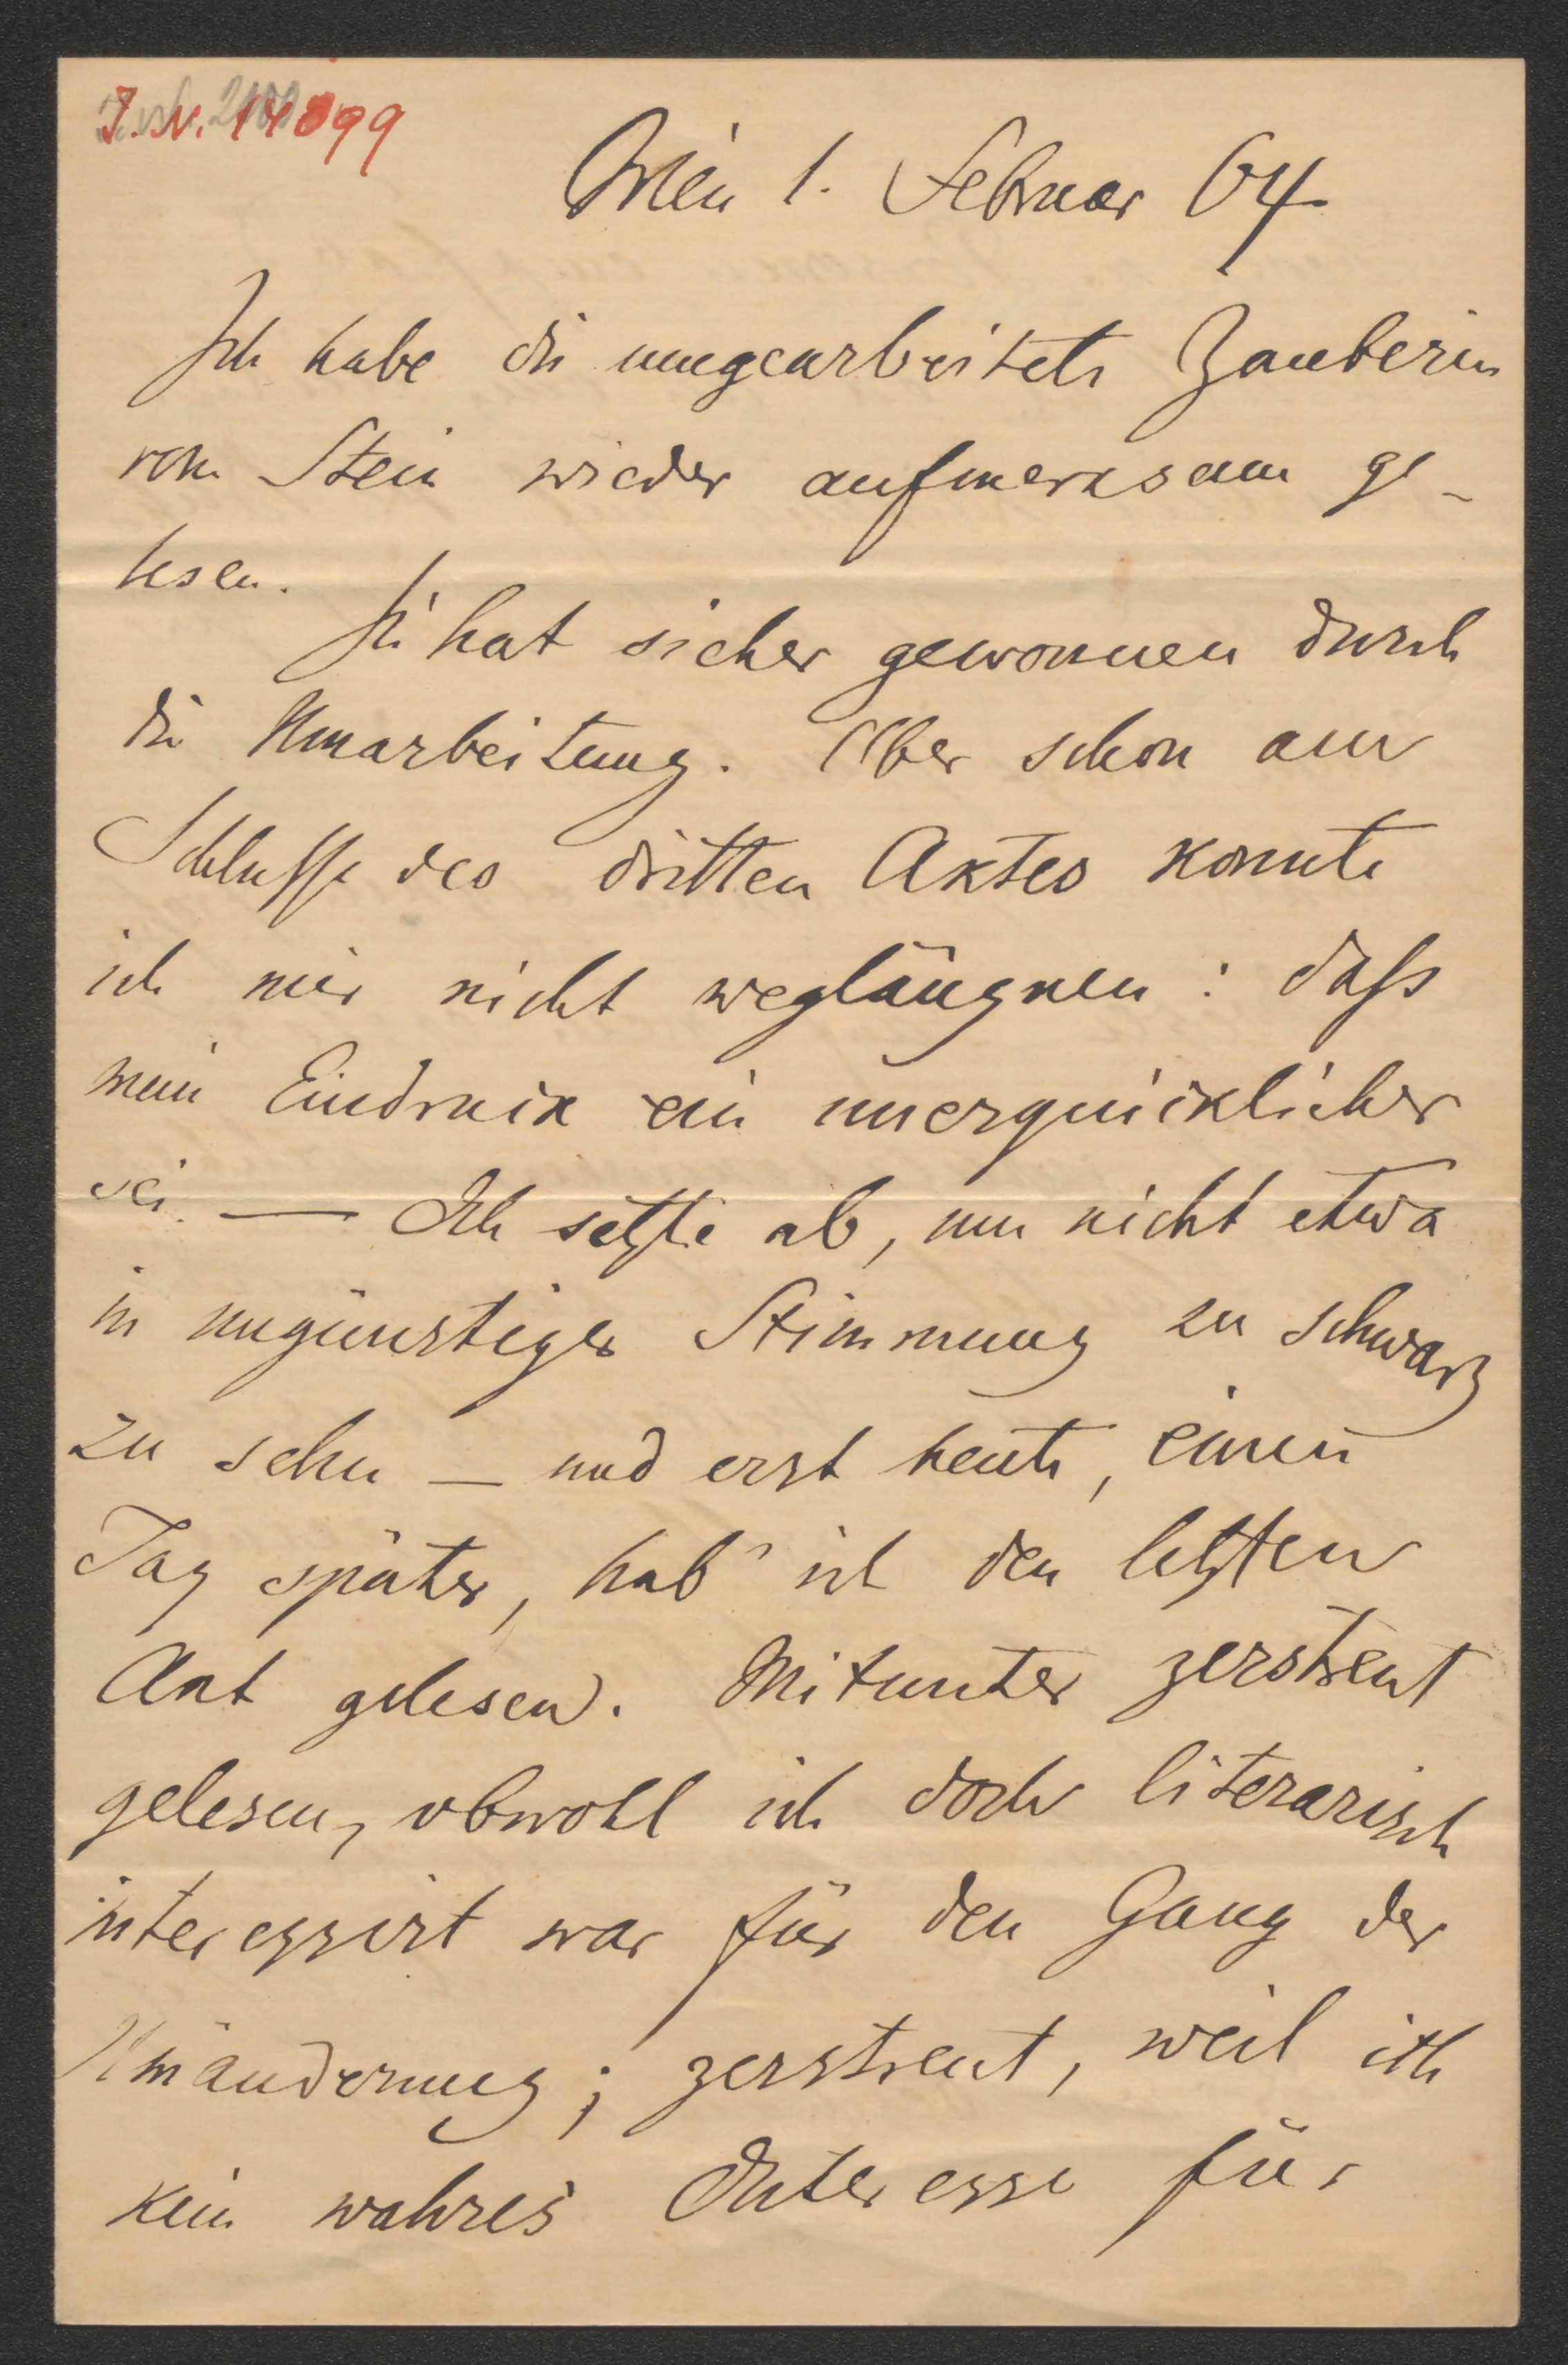 I.N. 14899
Wien 1. Februar 64
Ich habe die umgearbeitete Zauberin
vom Stein wieder aufmerksam ge-
lesen.
Sie hat sicher gewonnen durch
die Umarbeitung. Aber schon am
Schlusse des dritten Aktes konnte
ich mir nicht wegläugnen: daß
mein Eindruck ein unerquicklicher
sei. — Ich setzte ab, um nicht etwa
in ungünstiger Stimmung zu schwarz
zu sehn — und erst heute, einen
Tag später, hab' ich den letzten
Akt gelesen. Mitunter zerstreut
gelesen, obwohl ich doch literarisch
interessirt war für den Gang der
Umänderung; zerstreut, weil ich
kein wahres Interesse für